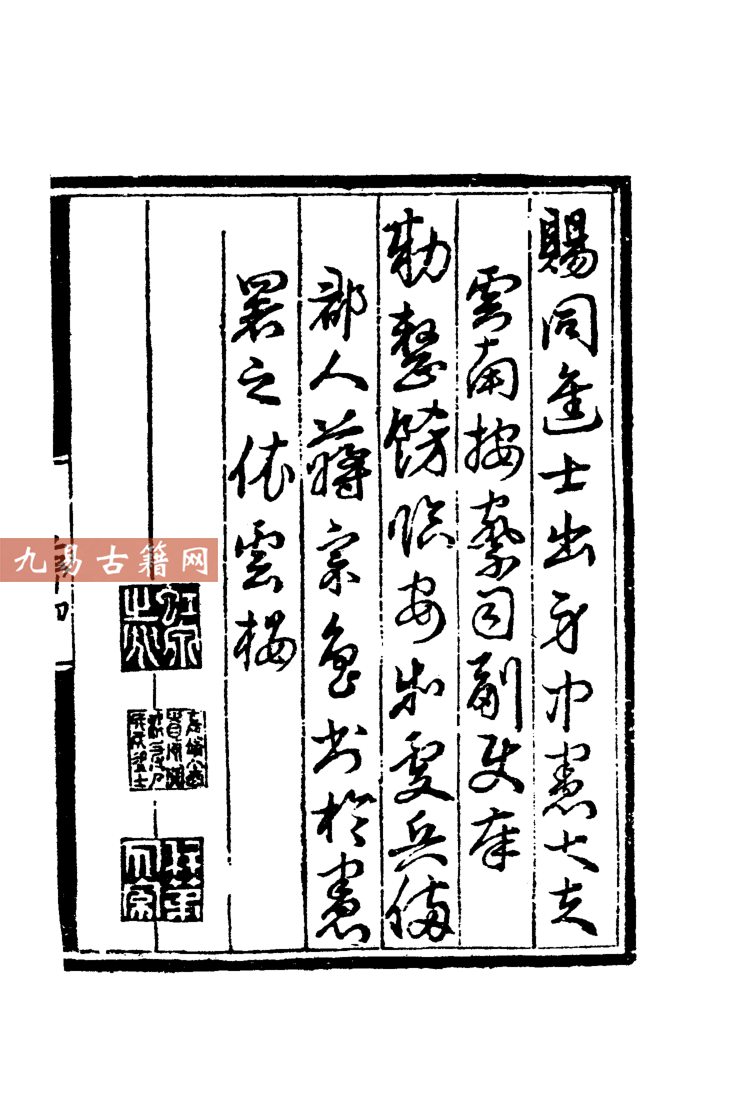 賜同進士出身中憲大夫
雲南按察司副使奉
勅整飭臨安制變兵備
郡人蔣宗魯書於憲
署之依雲樓
九易古籍网